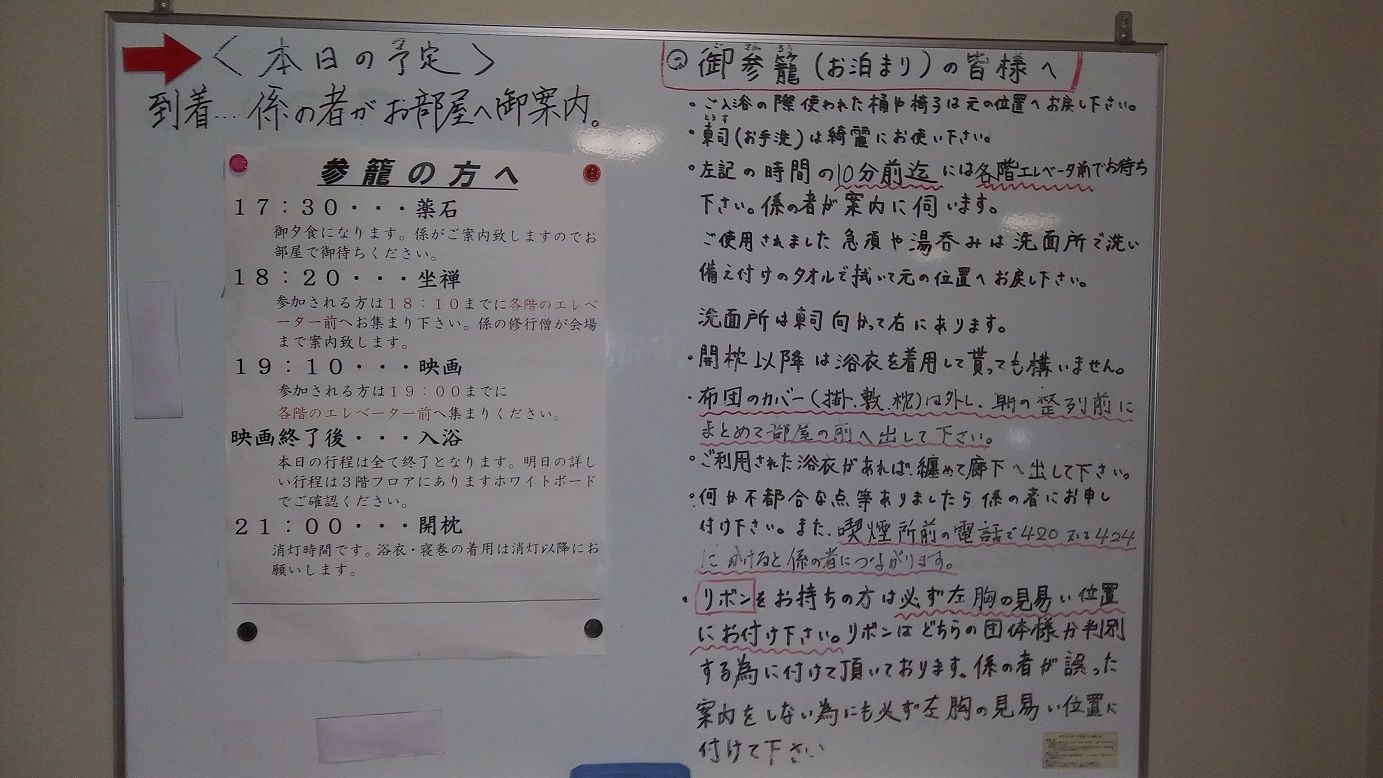 ＜本日の予定＞
到着…係の者がお部屋へ御案内。
参籠の方へ
１７：３０・・・薬石
御夕食になります。係がご案内致しますのでお
部屋で御待ちください。
１８：２０・・・坐禅
参加される方は１８：１０までに各階のエレベ
ーター前へお集まり下さい。係の修行僧が会場
まで案内致します。
１９：１０・・・映画
参加される方は１９：００までに
各階のエレベーター前へ集まりください。
映画終了後・・・入浴
本日の行程は全て終了となります。明日の詳し
い行程は３階フロアにありますホワイトボード
でご確認ください。
２１：００・・・開枕
消灯時間です。浴衣・寝巻の着用は消灯以降にお
願いします。
御参籠(お泊まり)の皆様へ
ご さん ろう
・ご入浴の際使われた桶や椅子は元の位置へお戻し下さい。
とうす
・東司(お手洗)は綺麗にお使い下さい。
・左記の時間の10分前迄には各階エレベータ前でお待ち
下さい。係の者が案内に伺います。
ご使用されました急須や湯呑みは洗面所で洗い
備え付けのタオルで拭いて元の位置へお戻し下さい。
洗面所は東司向かって右にあります。
・開枕以降は浴衣を着用して貰っても構いません。
・布団のカバー(掛、敷、枕)は外し、朝の整列前に
まとめて部屋の前へ出して下さい。
・ご利用された浴衣があれば、纏めて廊下へ出して下さい。
・何か不都合な点等ありましたら係の者にお申し
付け下さい。また、喫煙所前の電話で420又は424
にかけると係の者につながります。
・リボンをお持ちの方は必ず左胸の見易い位置
にお付け下さい。リボンはどちらの団体様か判別
する為に付けて頂いております。係の者が誤った
案内をしない為にも必ず左胸の見易い位置に
付けて下さい